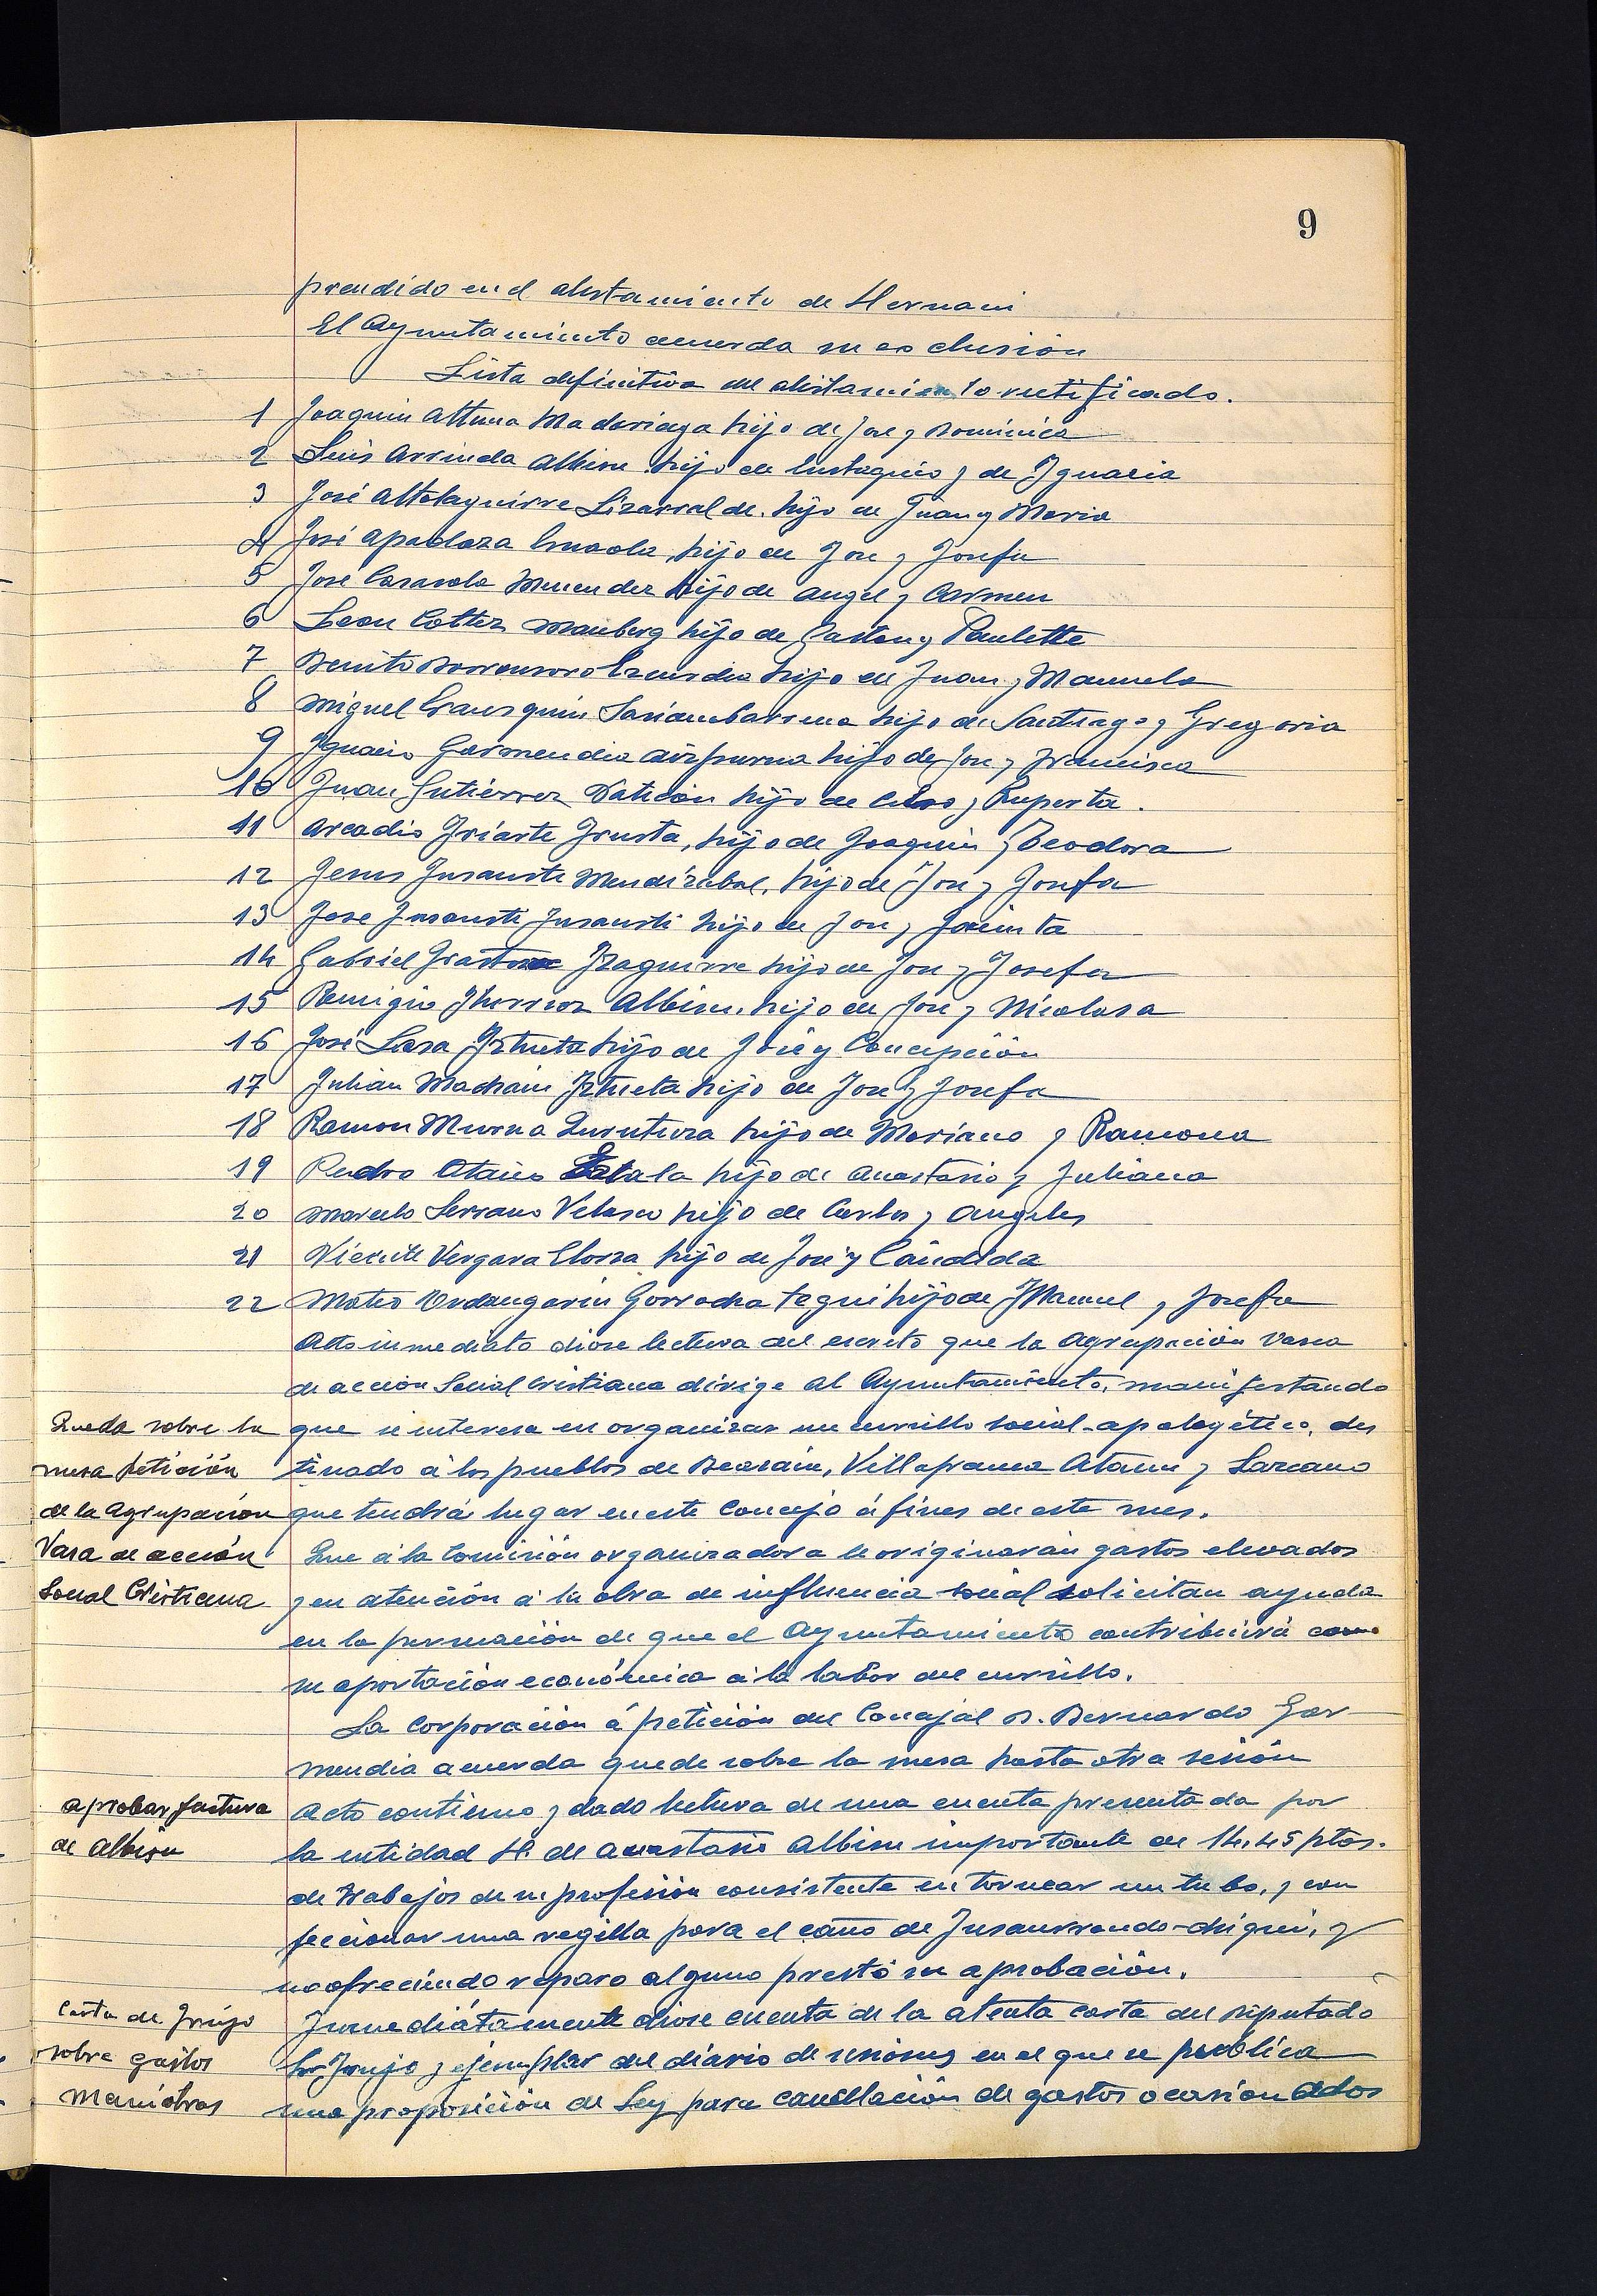 9
prendido en el alistamiento de Hernani
El Ayuntamiento acuerda su exclusión
Lista definitiva del alistamiento rectificado.
1 Joaquin Altuna Madariaga hijo de José y Dominica
2 Luis Arrinda Albisu hijo de Eustaquio y de Ignacia
3 José Altolaguirre Lizarralde hijo de Juan y Maria
4 José Apaolaza hijo de José y Josefa
5 José Casasola Menendez hijo de Angel y Carmen
6 Leon Cotter Mauberg hijo de Gaston y Paulette
7 Benito Dorronsoro hijo de Juan y Manuela
8 Miguel Erausquin hijo de Santiago y Gregoria
9 Ignacio Garmendia Aizpurua hijo de José y Francisca
10 Juan Gutiérrez hijo de Celso y Ruperta.
11 Arcadio Iriarte Irusta, hijo de Joaquin y Teodora
12 Jesus Insausti Mendizabal, hijo de José y Josefa
13 Jose Insausti Insausti hijo de José y Jacinta
14 Gabriel Irastorza Izaguirre hijo de José y Josefa
15 Remigio Iturrioz Albisu, hijo de José y Nicolasa
16 José Lasa Iztueta hijo de José y Concepción
17 Julián Machain Iztueta hijo de José y Josefa
18 Ramon Murua Zurutuza hijo de Mariano y Ramona
19 Pedro Otaño Zatala hijo de Anastasio y Juliana
20 Marcelo Serrano Velasco hijo de Carlos y Angeles
21 Vicente Vergara Elorza hijo de José y Cándida
22 Mateo Urdangarin Gorrochategui hijo de J Manuel y Josefa
Acto inmediato diose lectura del escrito que la Agrupación Vasca
de acción Social Cristiana dirige al Ayuntamiento, manifestando
Queda sobre la
que se interesa en organizar un cursillo social-apologético, des
mesa petición
tinado á los pueblos de Beasáin, Villafranca Ataun y Lazcano
de la Agrupacion
que tendrá lugar en este Concejo á fines de este mes.
Vasca de acción
Que á la Comisión organizadora le originarán gastos elevados
Social Cristiana
y en atención á la obra de influencia social solicitan ayuda
en la persuación de que el Ayuntamiento contribuirá como
su aportación económica á la labor del cursillo.
La Corporación á petición del Concejal D. Bernardo Gar
mendia acuerda quede sobre la mesa hasta otra sesión
aprobar factura
Acto contiuno y dado lectura de una cuenta presentada por
de Albisu
la entidad H. de Anastasio Albisu importante de 14,45 ptas.
de trabajos de su profesión consistente en tornear un tubo, y con
feccionar una regilla para el caño de Insaurrondo-chiqui, y
no ofreciendo reparo alguno prestó su aprobación.
Carta de Irujo
Inmediátamente diose cuenta de la atenta carta del diputado
sobre gastos
Sr. Irujo y ejemplar del diario de sesiones en el que se publica
Maniobras
una proposición de Ley para cancelación de gastos ocasionados